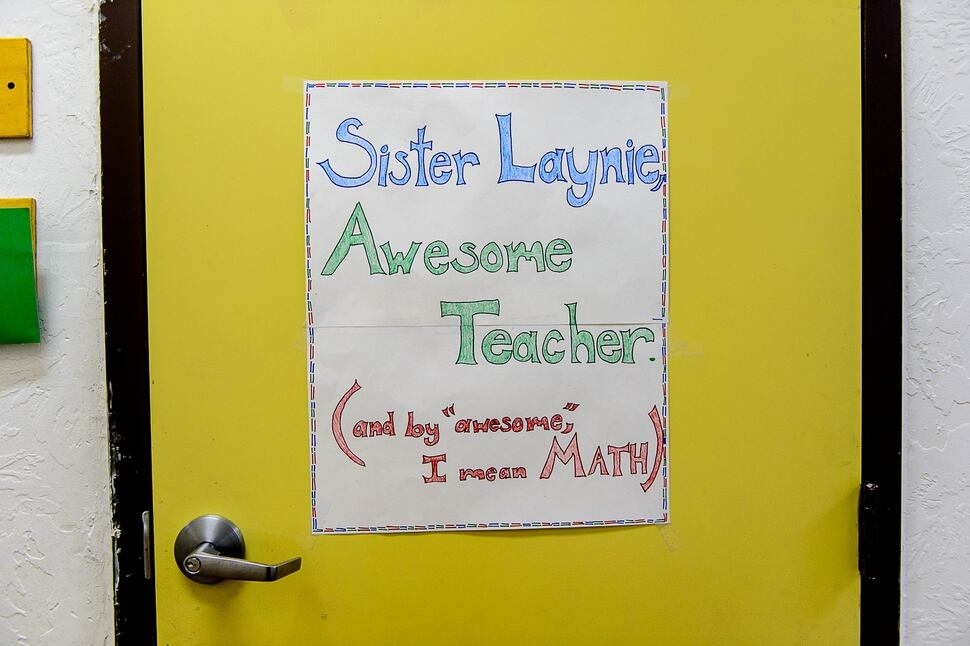 Sister Laynie,
Awesome
Teacher.
(and by "awesome,"
I mean MATH)